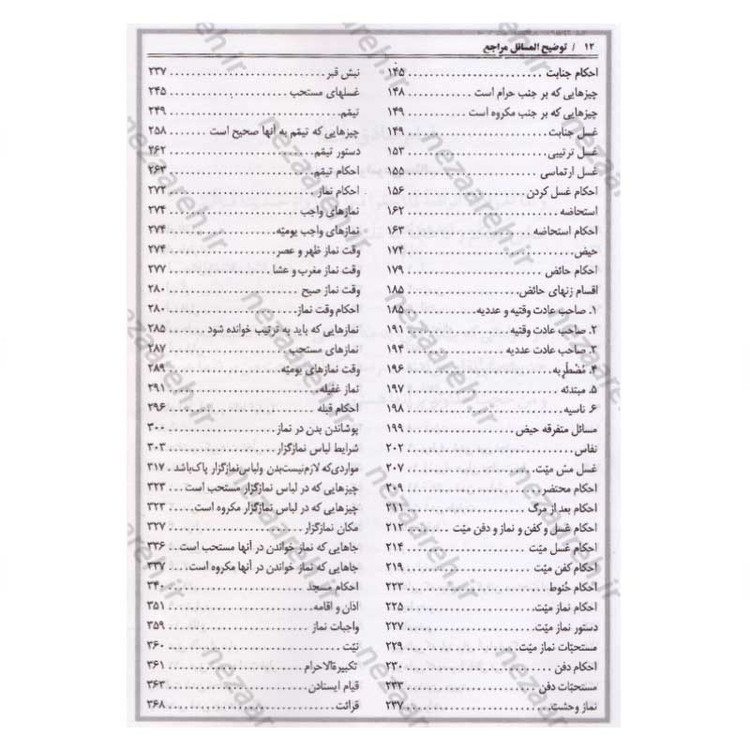 ۱۲ / توضیح المسائل مراجع
احکام جنابت ۱۴۵
چیزهایی که بر جنب حرام است ۱۴۸
چیزهایی که بر جنب مکروه است ۱۴۹
غسل جنابت ۱۴۹
غسل ترتیبی ۱۵۳
غسل ارتماسی ۱۵۵
احکام غسل کردن ۱۵۶
استحاضه ۱۶۲
احکام استحاضه ۱۶۳
حیض ۱۷۴
احکام حائض ۱۷۹
اقسام زنهای حائض ۱۸۵
۱. صاحب عادت وقتیه و عددیه ۱۸۵
۲. صاحب عادت وقتیه ۱۹۱
۳. صاحب عادت عددیه ۱۹۴
۴. مُضْطَرِبه ۱۹۶
۵. مبتدئه ۱۹۷
۶. ناسیه ۱۹۸
مسائل متفرقه حیض ۱۹۹
نفاس ۲۰۲
غسل مسّ میّت ۲۰۷
احکام محتضر ۲۰۹
احکام بعد از مرگ ۲۱۱
احکام غسل و کفن و نماز و دفن میّت ۲۱۲
احکام غسل میّت ۲۱۴
احکام کفن میّت ۲۱۹
احکام حُنوط ۲۲۳
احکام نماز میّت ۲۲۵
دستور نماز میّت ۲۲۷
مستحبّات نماز میّت ۲۲۹
احکام دفن ۲۳۰
مستحبّات دفن ۲۳۳
نماز وحشت ۲۳۷
نبش قبر ۲۳۷
غسلهای مستحب ۲۴۵
تیمّم ۲۴۹
چیزهایی که تیمّم به آنها صحیح است ۲۵۸
دستور تیمّم ۲۶۲
احکام تیمّم ۲۶۳
احکام نماز ۲۷۲
نمازهای واجب ۲۷۴
نمازهای واجب یومیّه ۲۷۴
وقت نماز ظهر و عصر ۲۷۴
وقت نماز مغرب و عشا ۲۷۷
وقت نماز صبح ۲۸۰
احکام وقت نماز ۲۸۰
نمازهایی که باید به ترتیب خوانده شود ۲۸۵
نمازهای مستحب ۲۸۷
وقت نمازهای یومیّه ۲۸۹
نماز غفیله ۲۹۱
احکام قبله ۲۹۶
پوشاندن بدن در نماز ۳۰۰
شرایط لباس نمازگزار ۳۰۳
مواردی‌که لازم‌نیست‌بدن ولباس‌نمازگزار پاک‌باشد ۳۱۷
چیزهایی که در لباس نمازگزار مستحب است ۳۲۳
چیزهایی که در لباس نمازگزار مکروه است ۳۲۳
مکان نمازگزار ۳۲۷
جاهایی که نماز خواندن در آنها مستحب است ۳۳۶
جاهایی که نماز خواندن در آنها مکروه است ۳۳۷
احکام مسجد ۳۴۰
اذان و اقامه ۳۵۱
واجبات نماز ۳۵۹
نیّت ۳۶۰
تکبیرةالاحرام ۳۶۱
قیام ایستادن ۳۶۳
قرائت ۳۶۸
nezaareh.ir